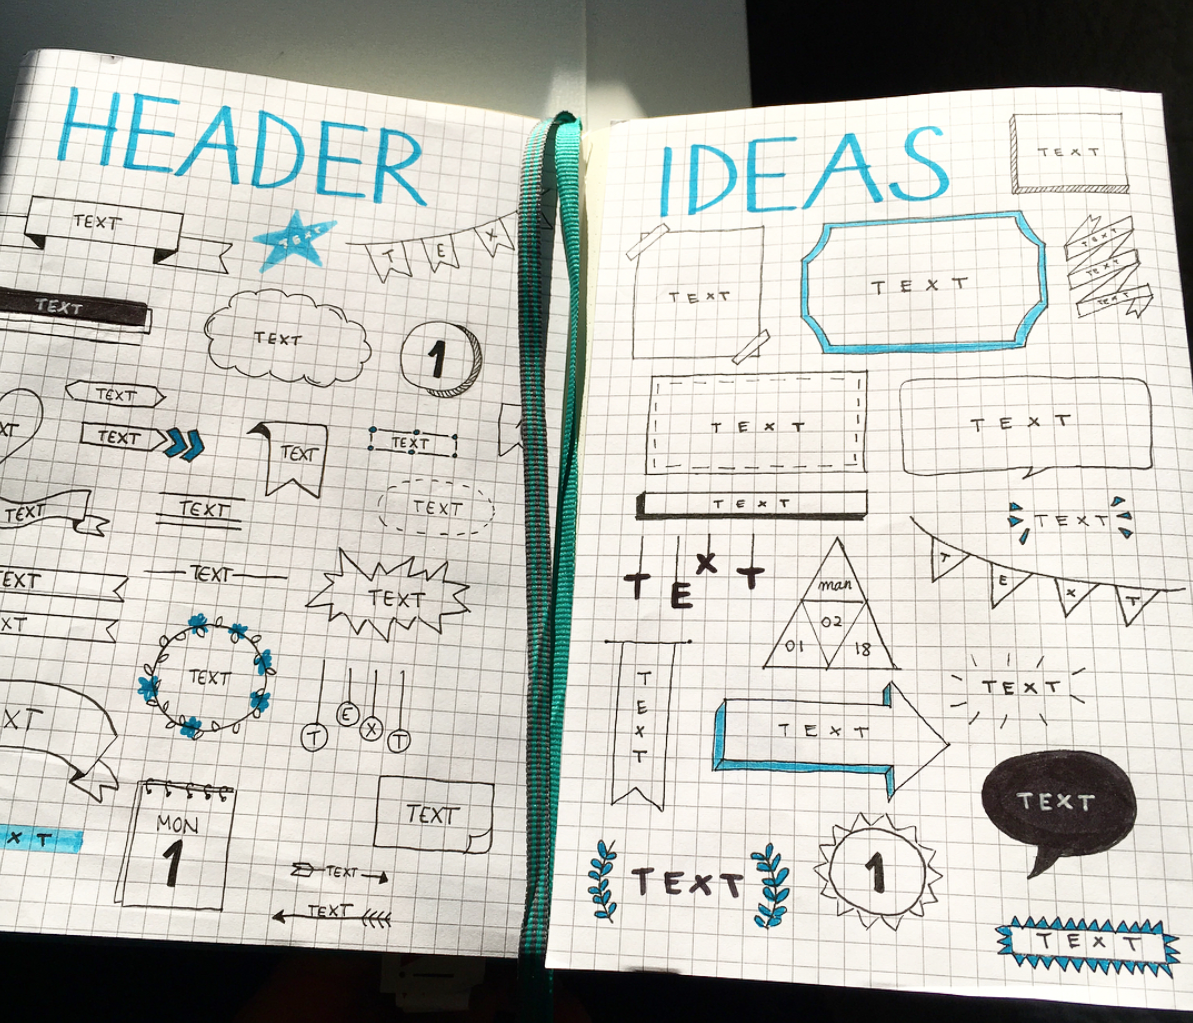 HEADER
TEXT
TEXT
TEX
TEXT
TEXT
1
TEXT
XT
TEXT
TEXT
TEXT
TEXT
TEXT
TEXT
TEXT
EXT
TEXT
XT
TEXT
XT
TEXT
MON
1
TEXT
XT
TEXT
TEXT
IDEAS
TEXT
TEXT
TEXT
TEXT
TEXT
TEXT
TEXT
TEXT
TEXT
TEXT
TEXT
TEXT
man
02
01 18
TEXT
TEXT
TEXT
TEXT
TEXT
1
TEXT